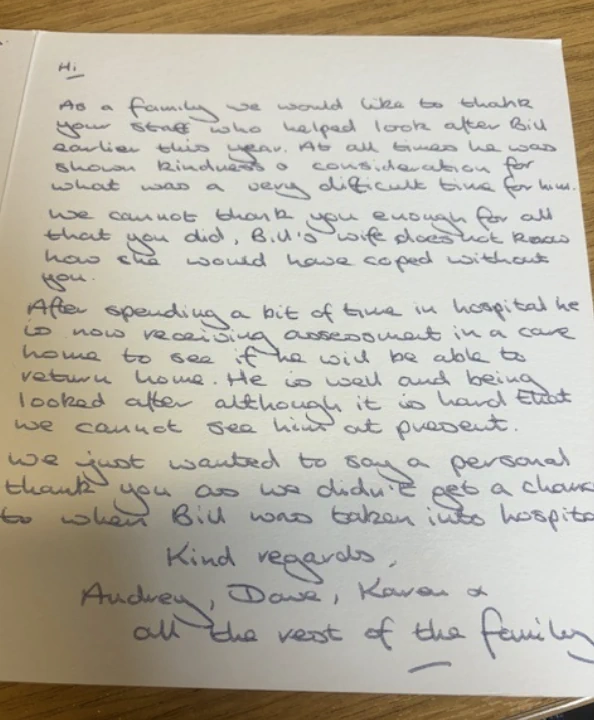 Hi
As a family we would like to thank
your staff who helped look after Bill
earlier this year. At all times he was
shown kindness & consideration for
what was a very difficult time for him.
We cannot thank you enough for all
that you did, Bill's wife does not know
how she would have coped without
you.
After spending a bit of time in hospital he
is now receiving assessment in a care
home to see if he will be able to
return home. He is well and being
looked after although it is hard that
we cannot see him at present.
We just wanted to say a personal
thank you as we didn't get a chanc
to when Bill was taken into hospita
Kind regards,
Audrey, Dave, Karen &
all the rest of the family